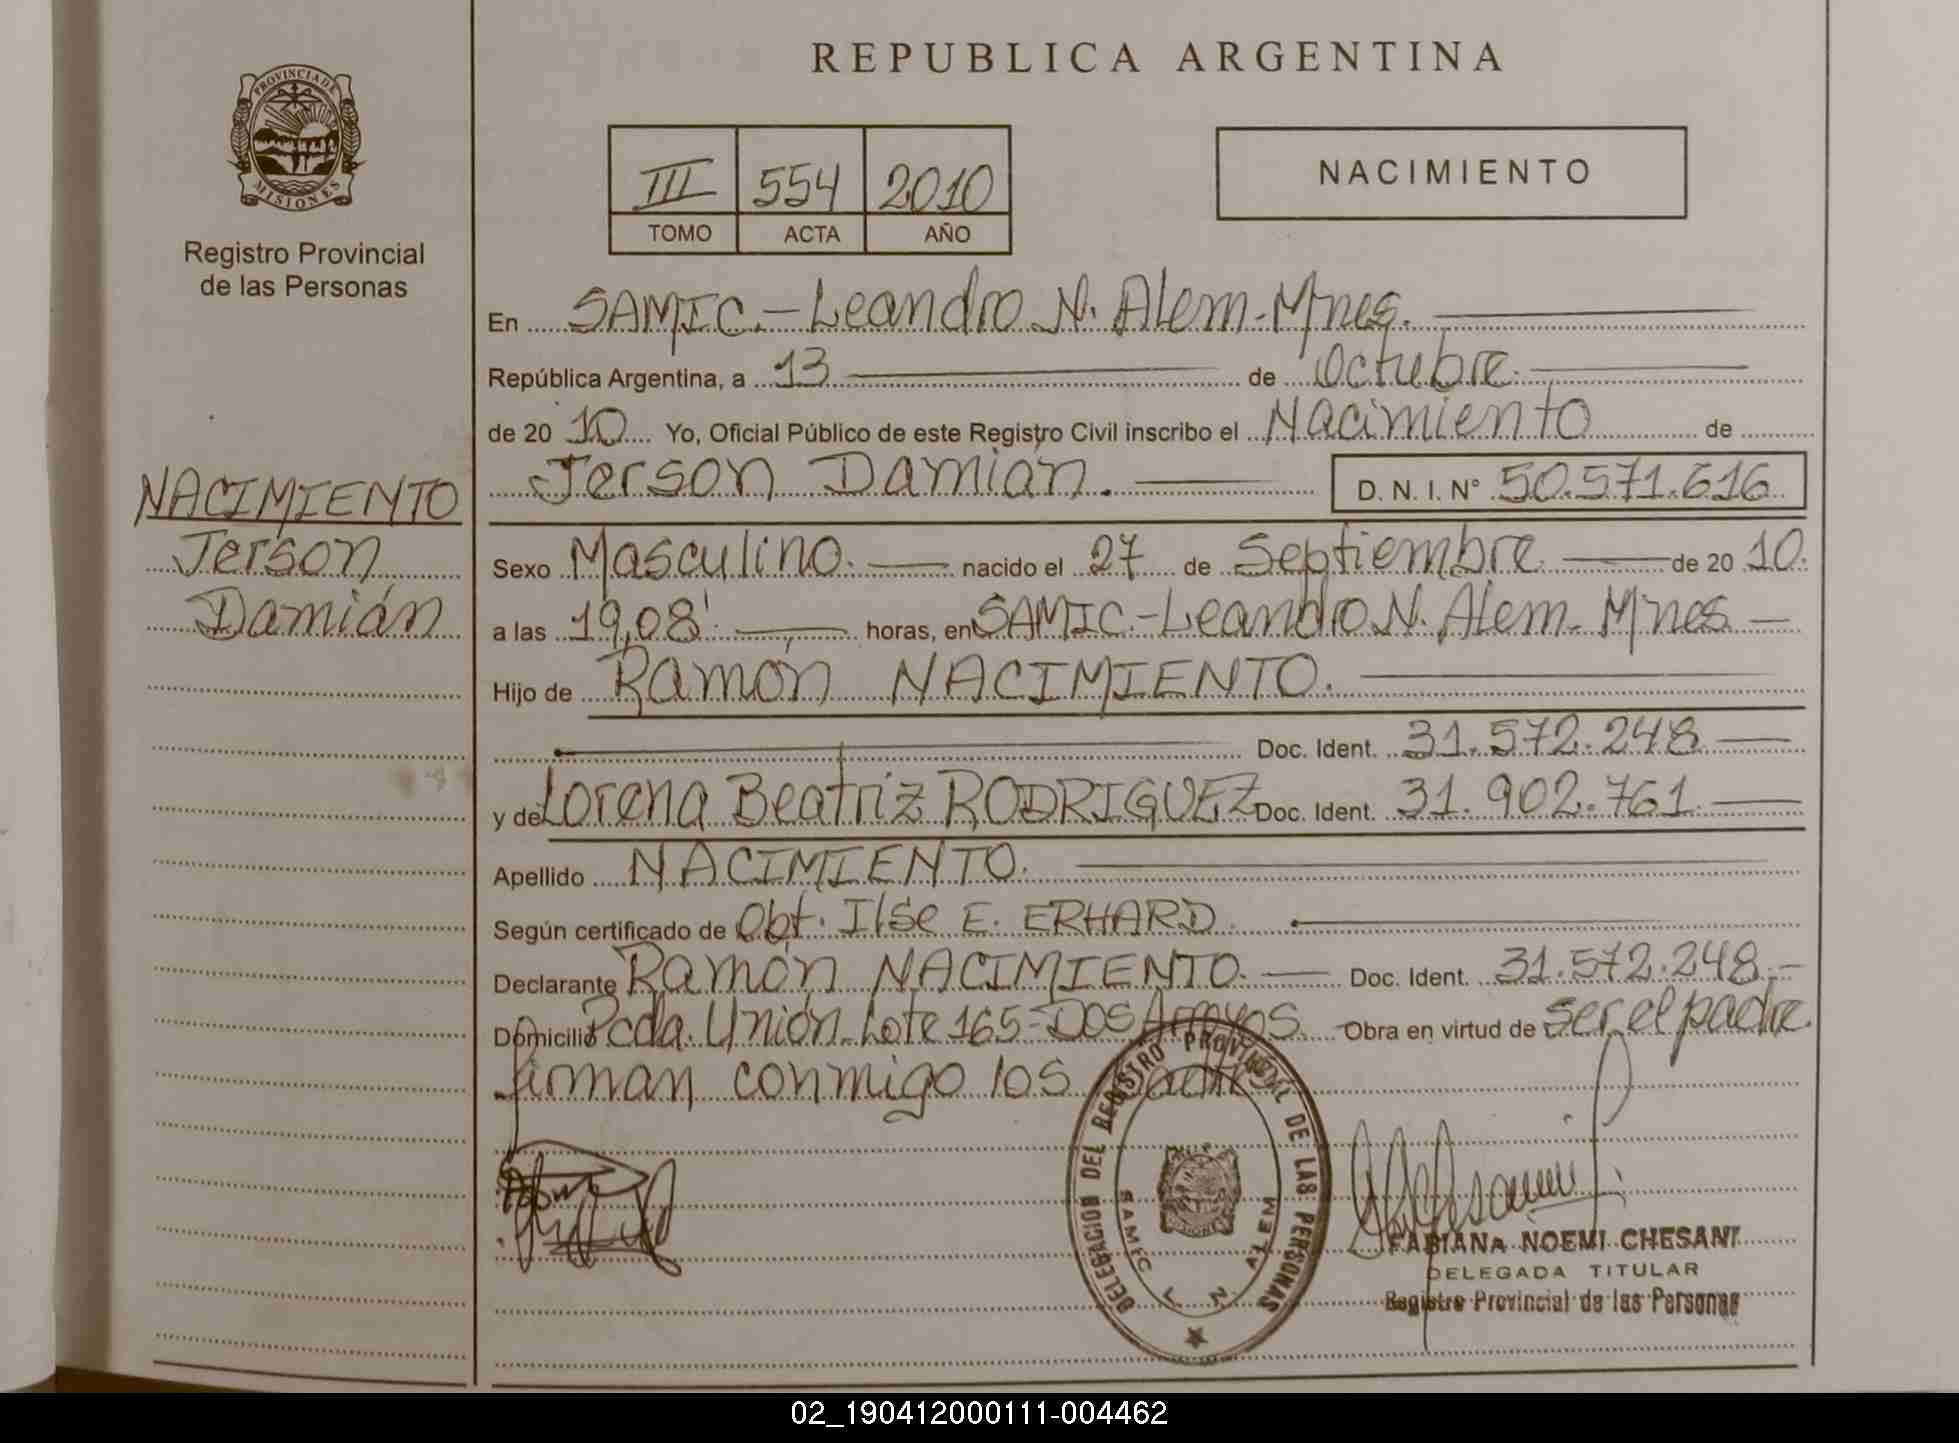 REPUBLICA ARGENTINA
PROVINCIA DE
MISIONES
Registro Provincial
de las Personas
III 554 2010
TOMO ACTA AÑO
NACIMIENTO
En SAMIC.-Leandro N. Alem-Mnes.
República Argentina, a 13 de Octubre.
de 20 10 Yo, Oficial Público de este Registro Civil inscribo el Nacimiento de
Jerson Damián. D. N. I. N° 50.571.616
NACIMIENTO
Jerson
Damián
Sexo Masculino. nacido el 27 de Septiembre de 20 10.
a las 19,08' horas, en SAMIC.-Leandro N. Alem- M'nes
Hijo de Ramón NACIMIENTO.
Doc. Ident. 31.572.248
y de Lorena Beatriz RODRIGUEZ Doc. Ident. 31.902.761
Apellido NACIMIENTO.
Según certificado de Obt. Ilse E. ERHARD.
Declarante Ramón NACIMIENTO. Doc. Ident. 31.572.248.-
Domicilio Pcda. Unión-Lote 165-Dos Arroyos. Obra en virtud de ser el padre.
firman conmigo los
DELEGACION DEL REGISTRO PROVINCIAL DE LAS PERSONAS
L N ALEM
FABIANA NOEMI CHESANI
DELEGADA TITULAR
Registro Provincial de las Personas
02_190412000111-004462